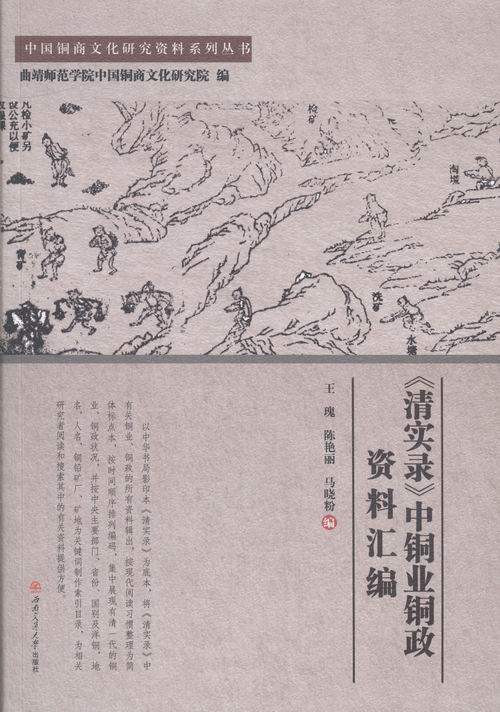 中国铜商文化研究资料系列丛书
曲靖师范学院中国铜商文化研究院 编
凡检小矿另
设公充以便
检矿
淘塃
背矿
洗矿
水塘
《清实录》中铜业铜政
资料汇编
王 瑰 陈艳丽 马晓粉 编
以中华书局影印本《清实录》为底本,将《清实录》中
有关铜业、铜政的所有资料辑出,按现代阅读习惯整理为简
体标点本,按时间顺序排列编码,集中展现有清一代的铜
业、铜政状况,并按中央主要部门、省份、国别及洋铜,地
名、人名、铜铅矿厂、矿地为关键词制作索引目录,为相关
研究者阅读和搜索其中的有关资料提供方便。
西南交通大学出版社